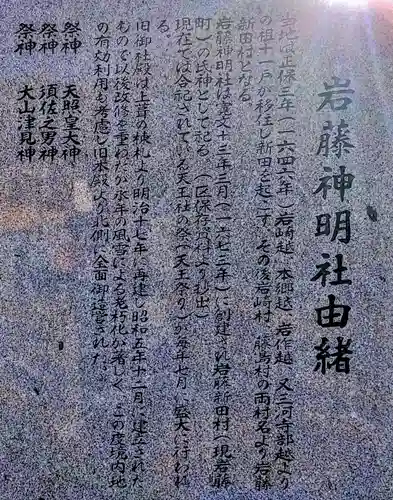 岩藤神明社由緒
当地は正保三年（一六四六年）岩崎越、本郷越、岩作越、又三河寺部越より
の祖十一戸が移住し新田を起こす、その後岩崎村、藤島村の両村名より岩藤
新田村となる。
岩藤神明社は寛文十三年三月（一六七三年）に創建され岩藤新田村（現岩藤
町）の氏神として記る（区保存資料より抄出）
現在では合祀されている天王社の祭（天王祭り）が毎年七月に盛大に行われ
る。
旧御社殿は上音の棟札より明治十七年に再建し昭和五年十二月に建立された
もので以後改修を重ねたが永年の風雪による老朽化が著しく、この度境内地
の有効利用も考慮し旧本殿より北側に全面御造営された。
祭神　天照皇大神
祭神　須佐之男神
祭神　大山津見神